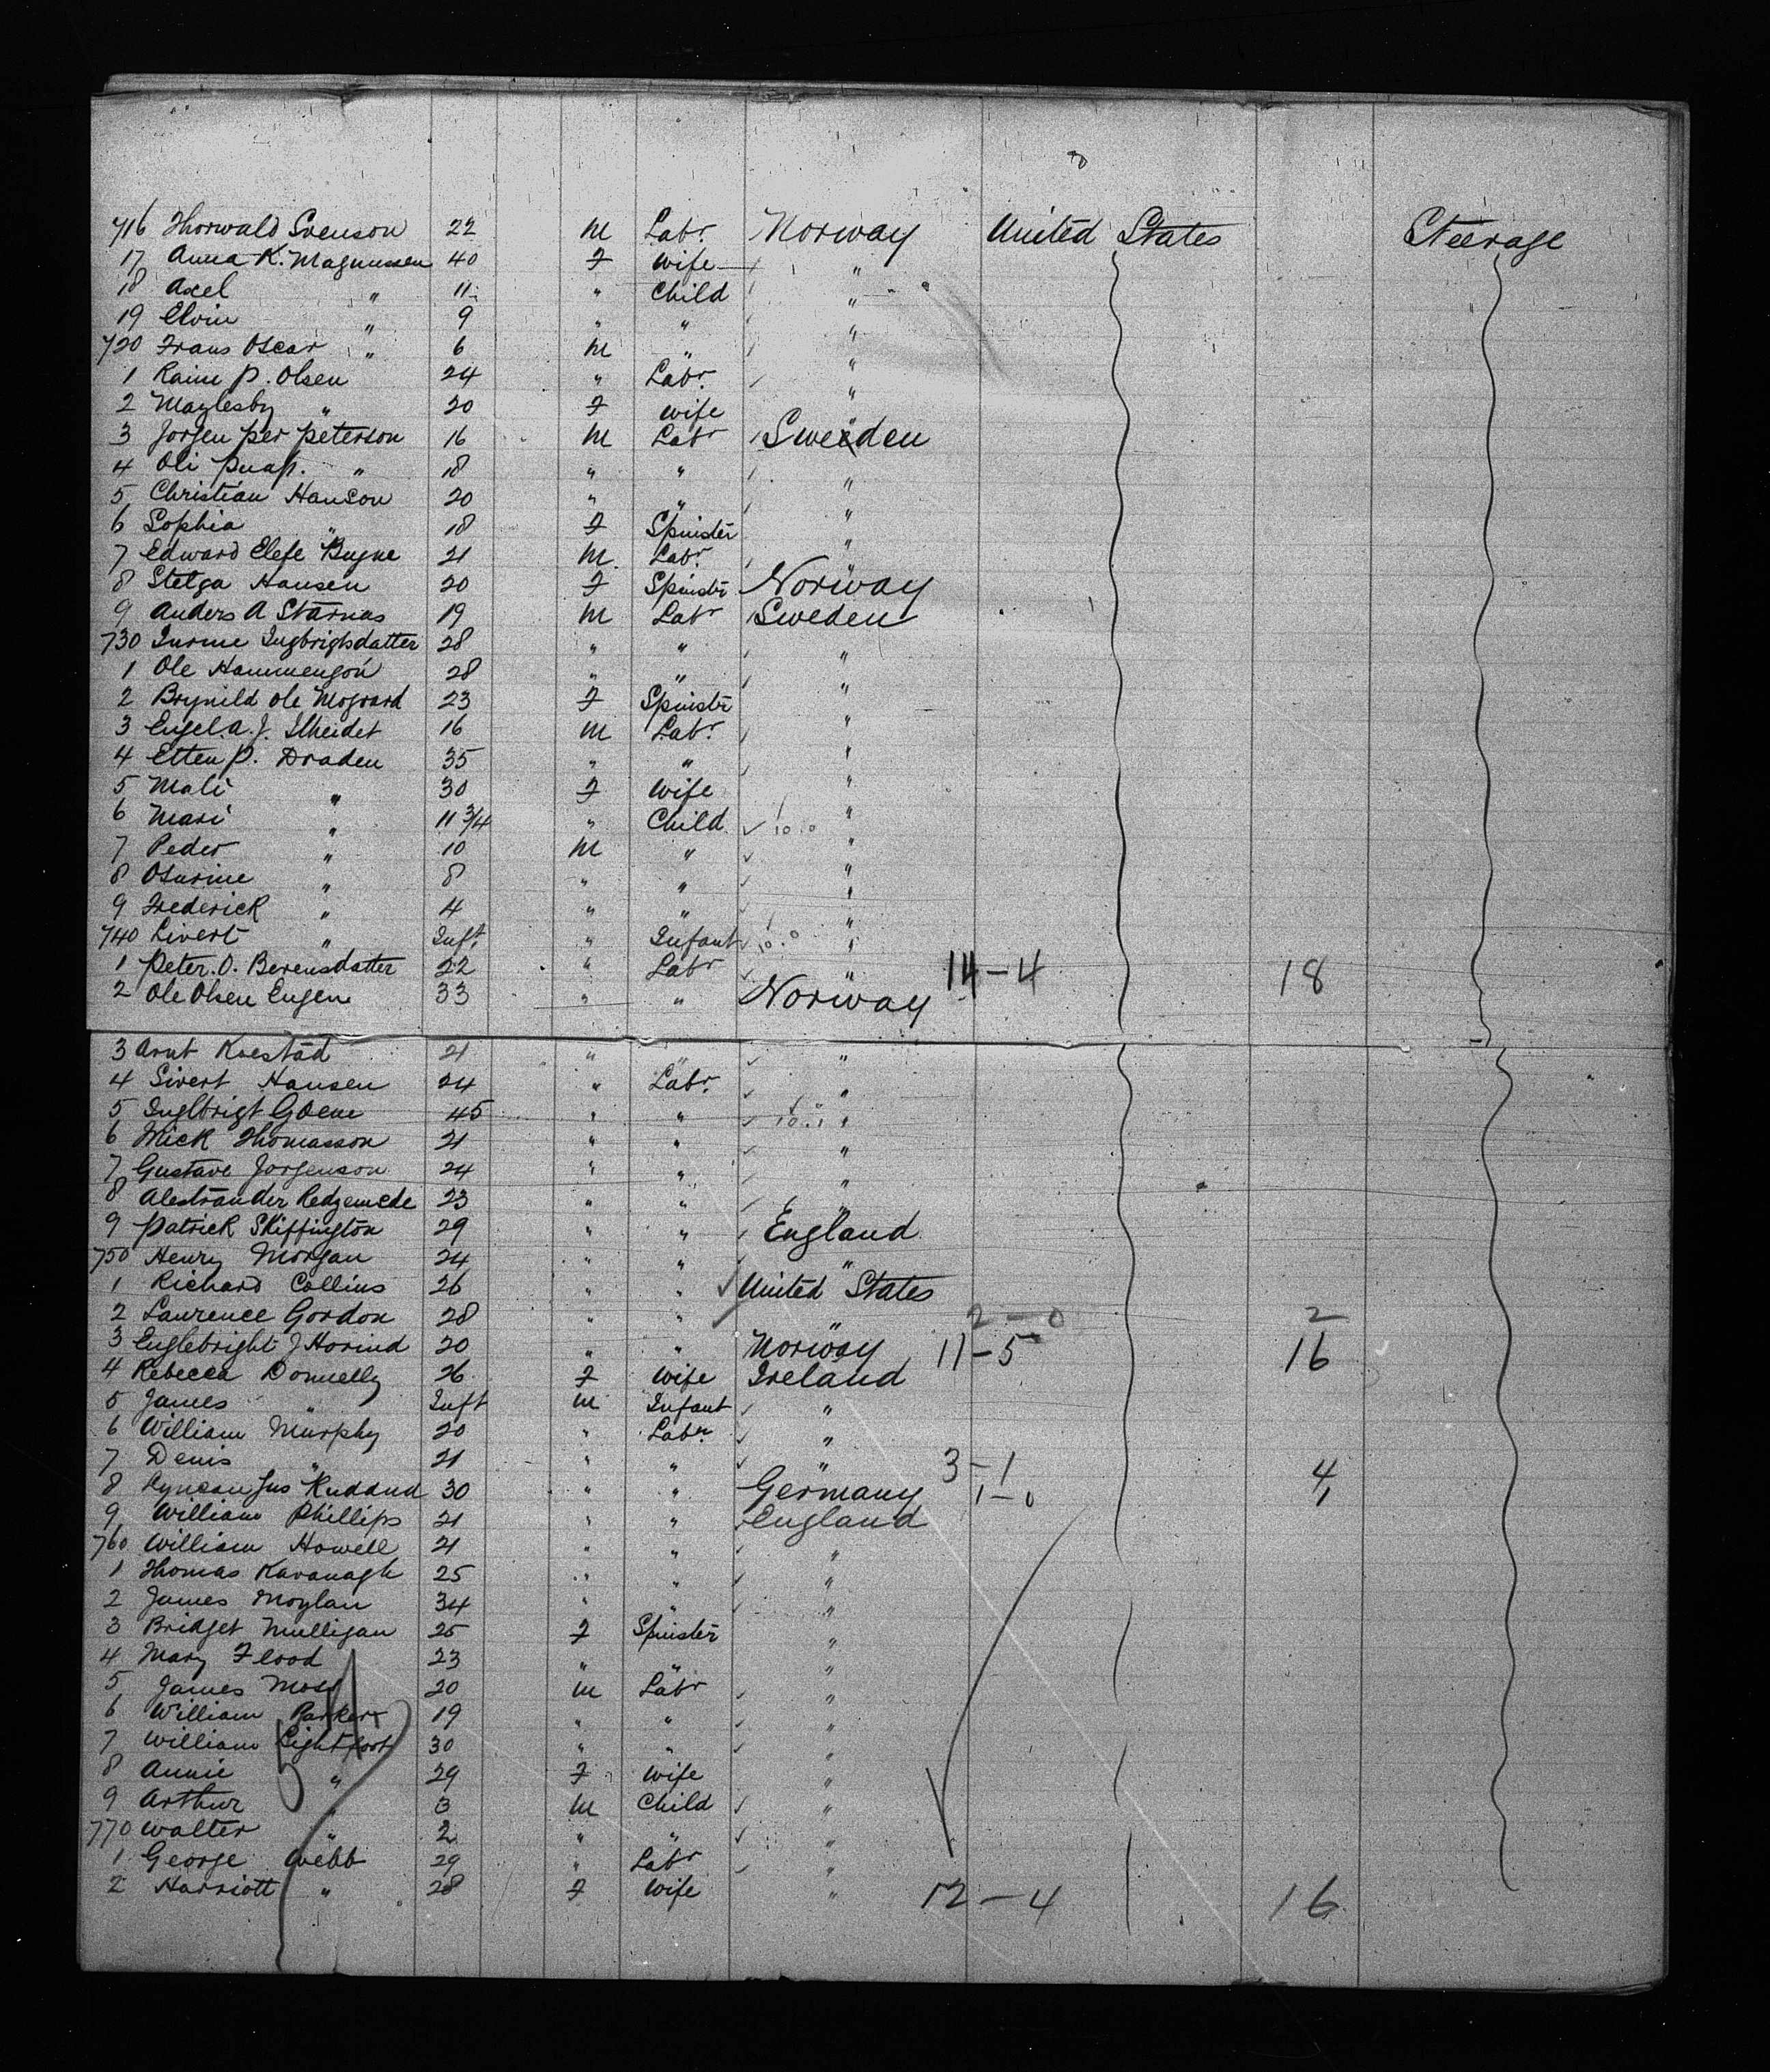 716 Thorwald Svenson 22 M Labr. Norway United States Steerage
17 Anna K. Magnussen 40 F Wife "
18 Axel " 11 " Child "
19 Elvin " 9 " " "
720 Frans Oscar " 6 M " "
1 Raine P. Olsen 24 " Labr. "
2 Maylesby " 20 F Wife "
3 Jorgen Per Peterson 16 M Labr Sweden
4 Oli " 18 " " "
5 Christian Hanson 20 " " "
6 Sophia " 18 F Spinster "
7 Edward Elefe Bugne 21 M. Labr. "
8 Stelga Hansen 20 F Spinster Norway
9 Anders A Starnas 19 M Labr Sweden
730 Ingbrigsdatter 28 " " "
1 Ole Hammengon 28 " " "
2 Brynild Ole Mogvard 23 F Spinster "
3 Engel. A. J. 16 M Labr. "
4 Etten P. Draden 35 " " "
5 Mali " 30 F Wife "
6 Mari " 11 3/4 " Child "
7 Peder " 10 M " "
8 Osurine " 8 " " "
9 Frederick " 4 " " "
740 Sivert " Inft. " Infant "
1 Peter. O. Berensdatter 22 " Labr " 14-4 18
2 Ole Olsen Eugene 33 " " Norway
3 Arnt Krestad 21 " " "
4 Sivert Hansen 24 " Labr. "
5 Inglbrigt Goene 45 " " "
6 Mick Thomasson 21 " " "
7 Gustave Jorgenson 24 " " "
8 Alestrander Redzemede 23 " " "
9 Patrick Skiffington 29 " " England
750 Henry Morgan 24 " " "
1 Richard Collins 26 " " United States
2 Laurence Gordon 28 " " " 2-0 2
3 Englebright J Horind 20 " " Norway 11-5 16
4 Rebecca Donnelly 26 F Wife Ireland
5 James " Inft M Infant "
6 William Murphy 20 " Labr. "
7 Denis " 21 " " " 3-1 4
8 Ruddnd 30 " " Germany 1-0 1
9 William Phillips 21 " " England
760 William Howell 21 " " "
1 Thomas Kavanagh 25 " " "
2 James Moylan 34 " " "
3 Bridget Mulligan 25 F Spinster "
4 Mary Flood 23 " " "
5 James Moss 20 M Labr "
6 William Parker 19 " " "
7 William Lightfoot 30 " " "
8 Annie " 29 F Wife "
9 Arthur " 3 M Child "
770 Walter " 2 " " "
1 George Webb 29 " Labr "
2 Harriott " 28 F Wife " 12-4 16